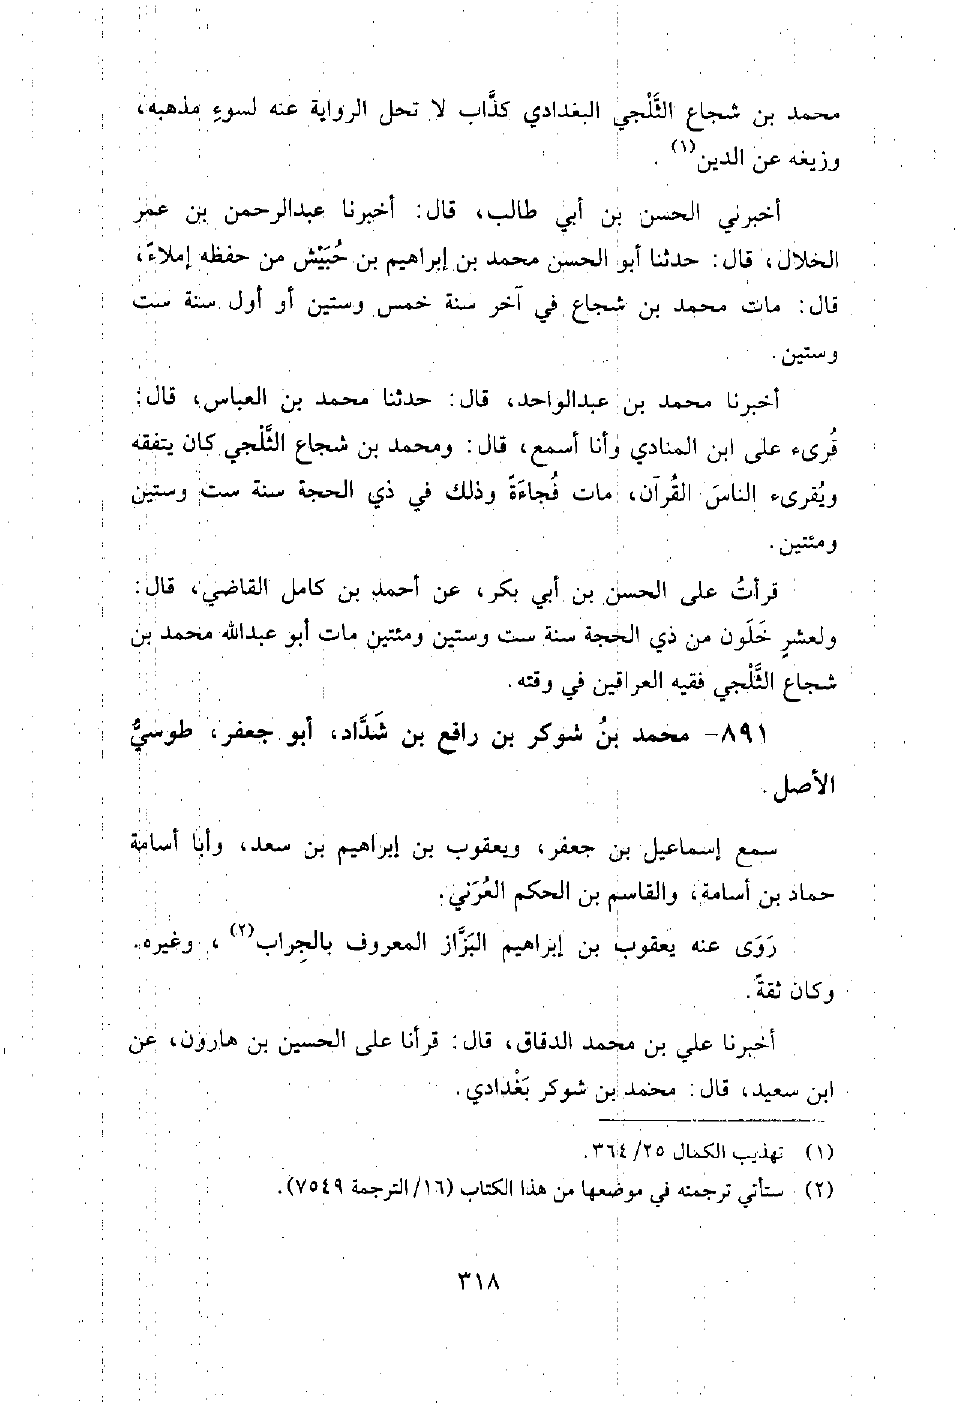 محمد بن شجاع الثَّلْجي البغدادي كذَّاب لا تحل الرواية عنه لسوءِ مذهبه،
وزيغه عن الدين(١) .
أخبرني الحسن بن أبي طالب، قال: أخبرنا عبدالرحمن بن عمر
الخلال، قال: حدثنا أبو الحسن محمد بن إبراهيم بن حُبَيْش من حفظه إملاءً،
قال: مات محمد بن شجاع في آخر سنة خمس وستين أو أول سنة ست
وستين.
أخبرنا محمد بن عبدالواحد، قال: حدثنا محمد بن العباس، قال:
قُرىء على ابن المنادي وأنا أسمع، قال: ومحمد بن شجاع الثَّلْجي كان يتفقه
ويُقرىء الناسَ القُرآن، مات فُجاءَةً وذلك في ذي الحجة سنة ست وستين
ومئتين.
قرأتُ على الحسن بن أبي بكر، عن أحمد بن كامل القاضي، قال:
ولعشرٍ خَلَون من ذي الحجة سنة ست وستين ومئتين مات أبو عبدالله محمد بن
شجاع الثَّلْجي فقيه العراقين في وقته.
٨٩١- محمد بنُ شوكر بن رافع بن شَدَّاد، أبو جعفر، طوسيُّ
الأصل.
سمع إسماعيل بن جعفر، ويعقوب بن إبراهيم بن سعد، وأبا أسامة
حماد بن أسامة، والقاسم بن الحكم العُرَني.
رَوَى عنه يعقوب بن إبراهيم البَزَّاز المعروف بالجِراب(٢) ، وغيره.
وكان ثقةً.
أخبرنا علي بن محمد الدقاق، قال: قرأنا على الحسين بن هارون، عن
ابن سعيد، قال: محمد بن شوكر بَغْدادي.
(١) تهذيب الكمال ٢٥/ ٣٦٤.
(٢) ستأتي ترجمته في موضعها من هذا الكتاب (١٦/ الترجمة ٧٥٤٩).
٣١٨